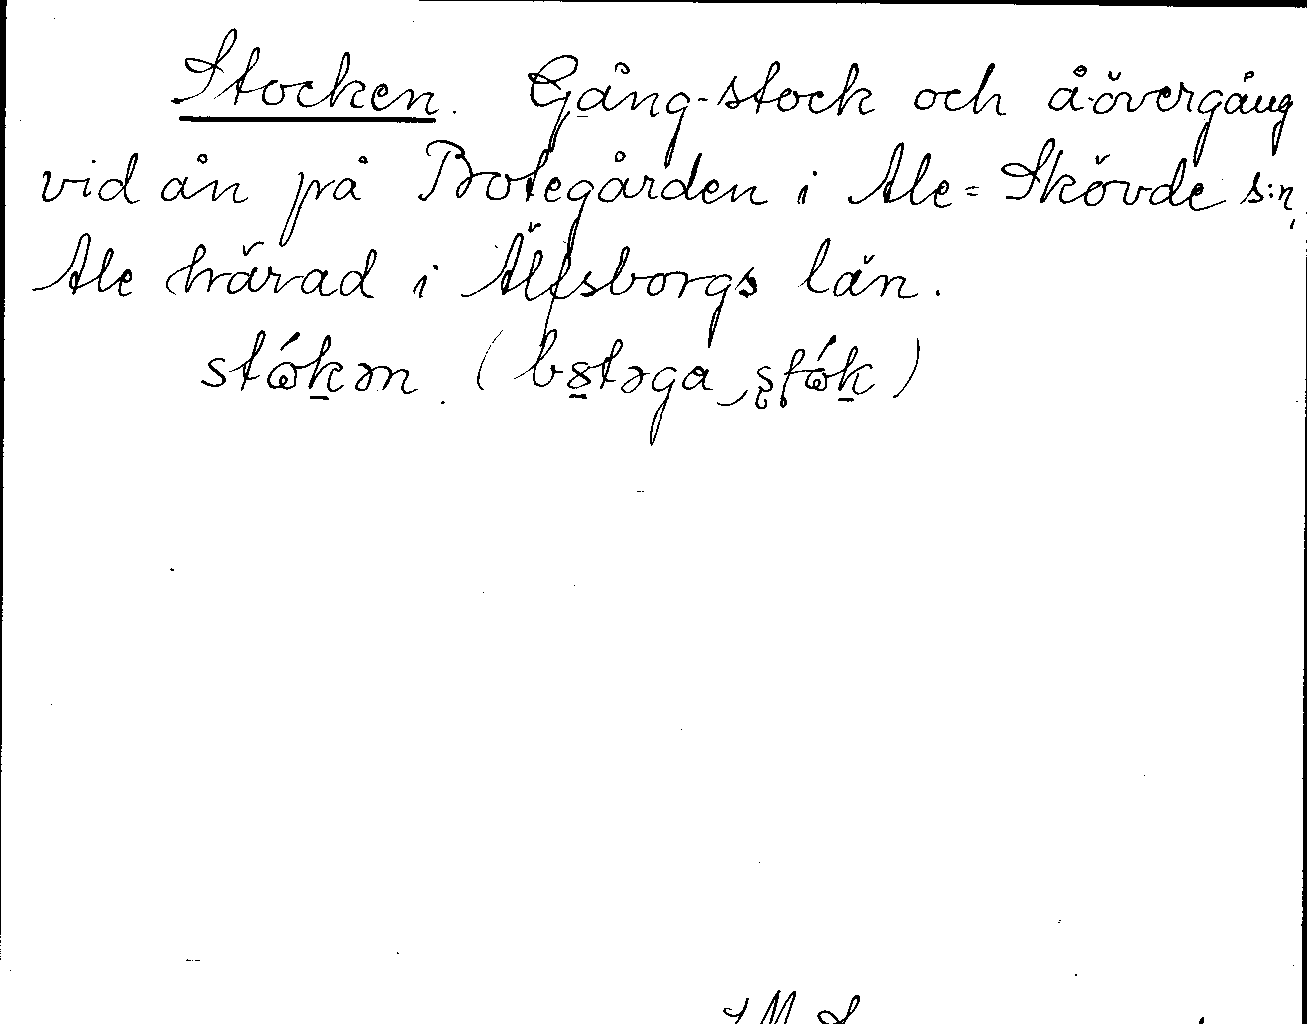 Stocken. Gång-stock och å-övergång
vid ån på Botegården i Ale=Skövde s:n,
Ale härad i Älfsborgs län.
stǿkən. (bstəga stǿk)